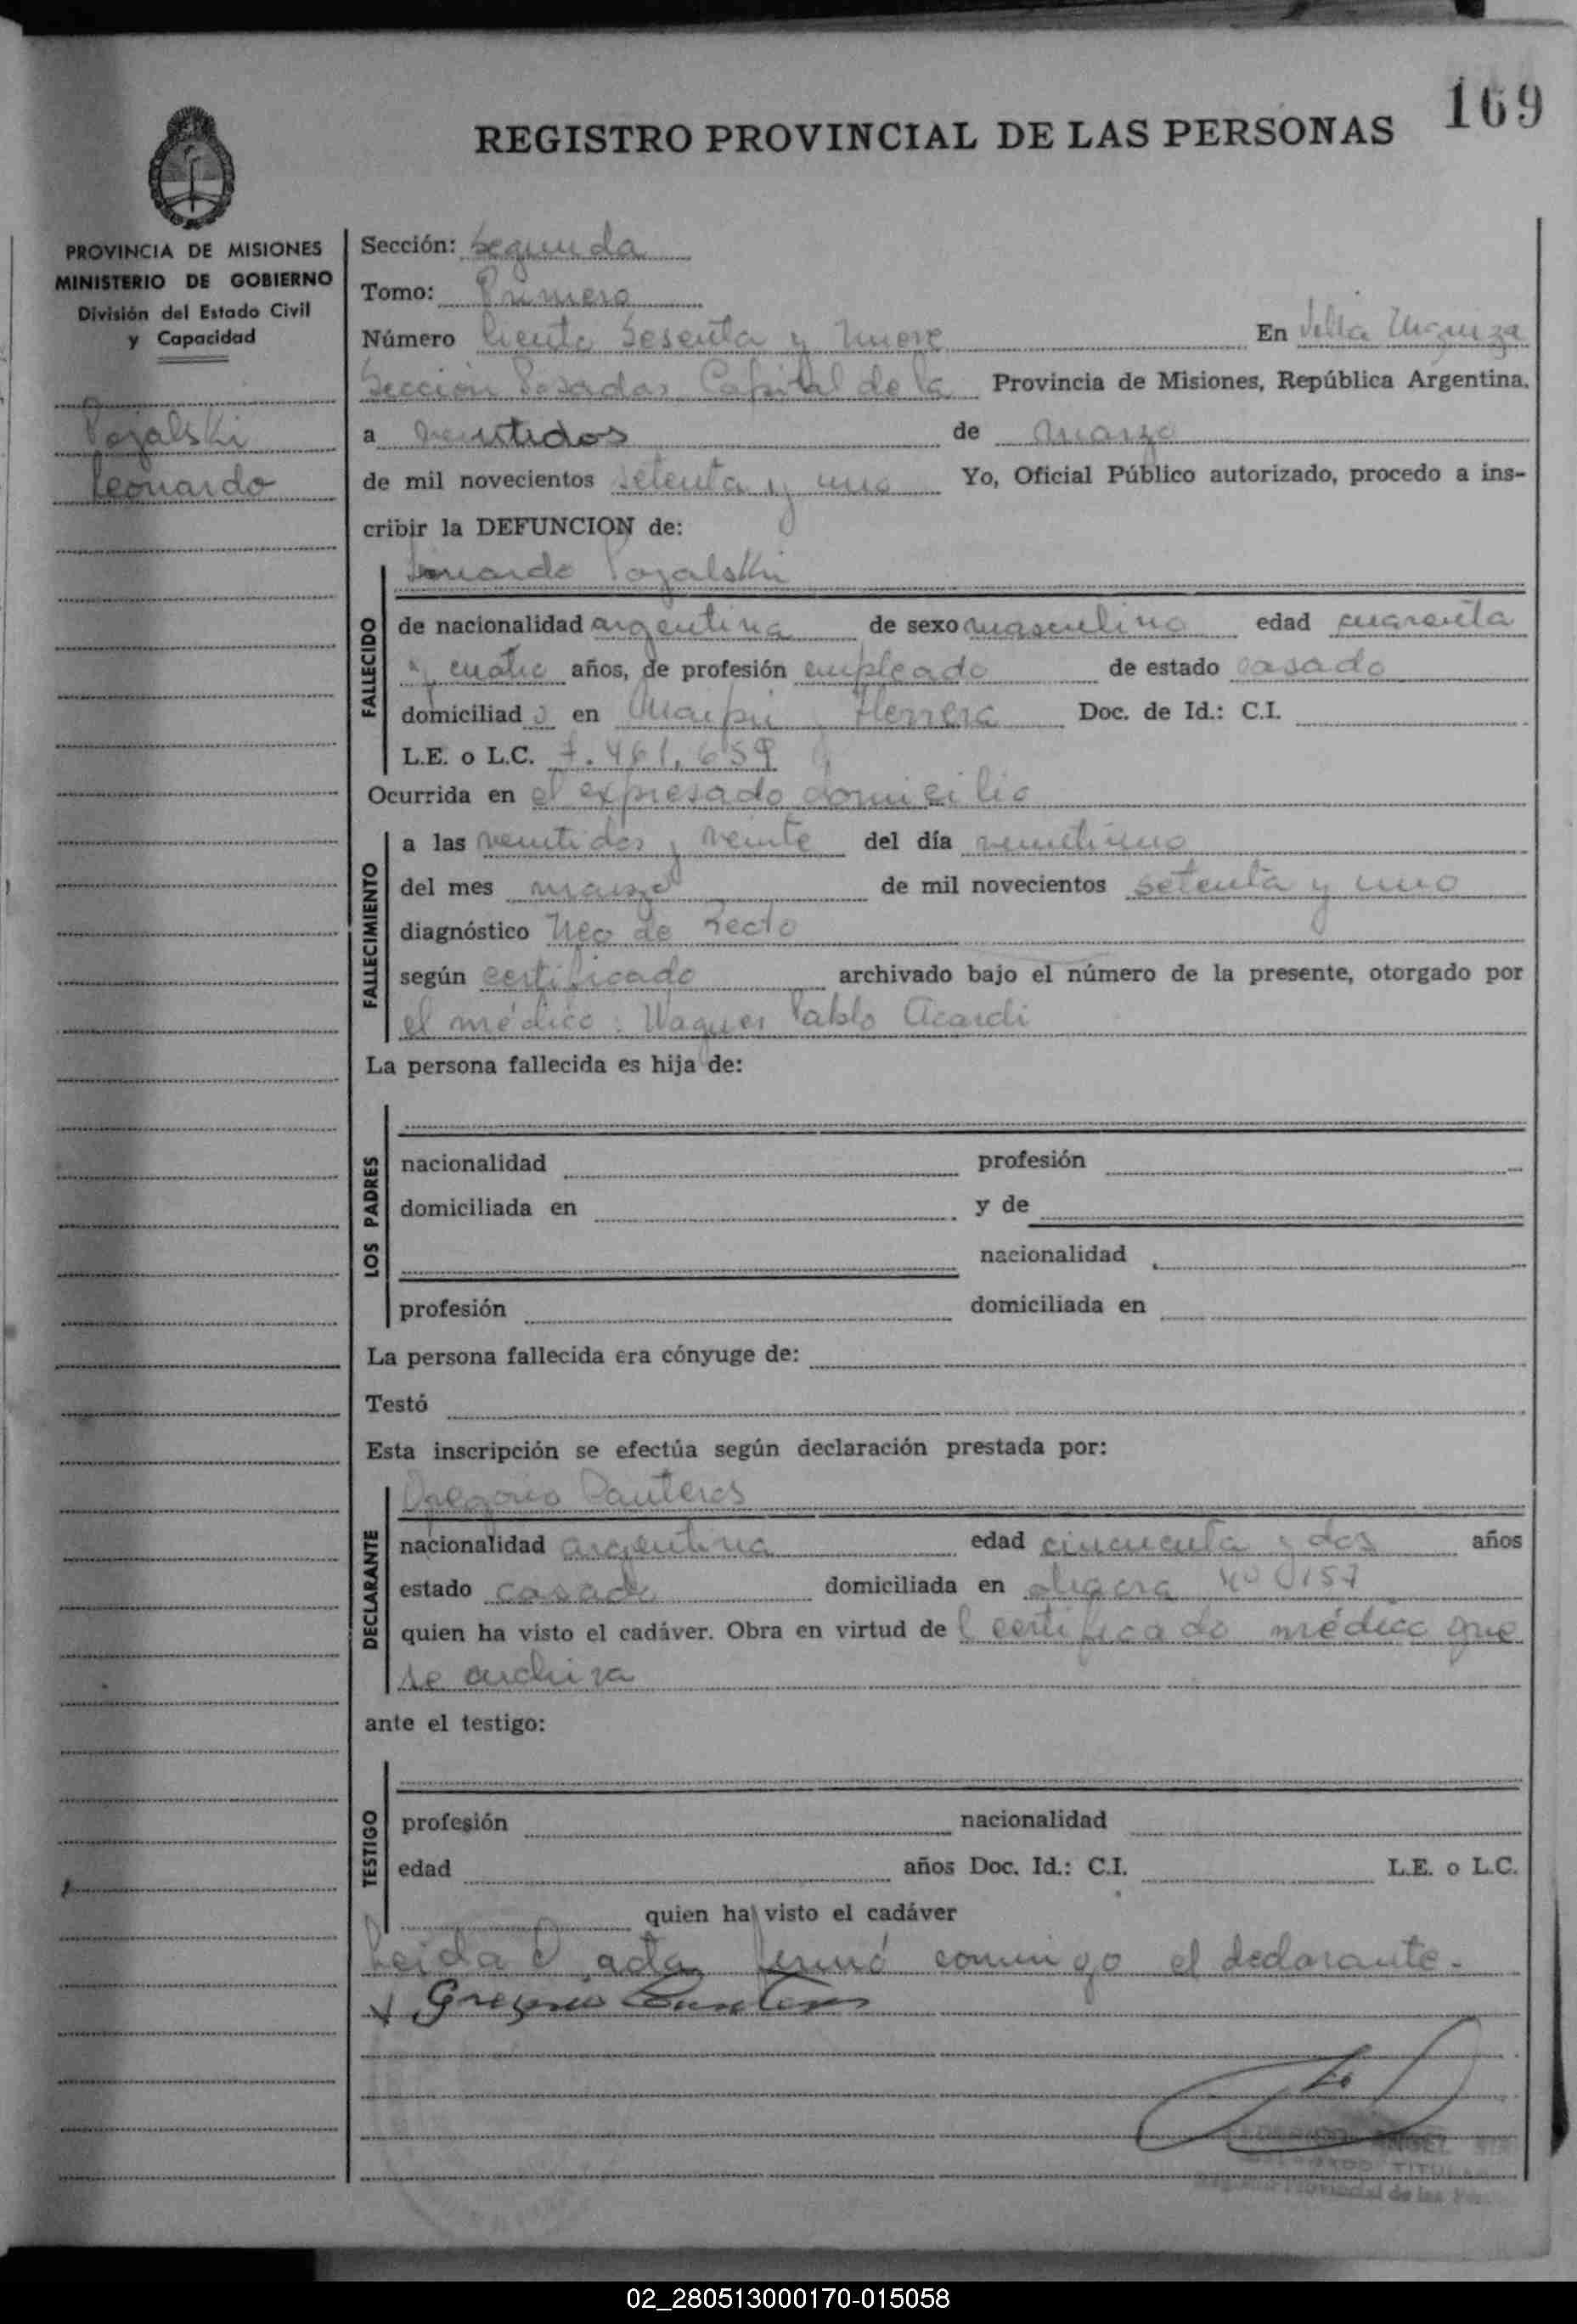 169
REGISTRO PROVINCIAL DE LAS PERSONAS
PROVINCIA DE MISIONES
MINISTERIO DE GOBIERNO
División del Estado Civil
y Capacidad
Pozalski
Leonardo
Sección: Segunda
Tomo: Primero
Número Ciento Sesenta y Nueve En Villa Urquiza
Sección Posadas Capital de la Provincia de Misiones, República Argentina,
a veintidos de marzo
de mil novecientos setenta y uno Yo, Oficial Público autorizado, procedo a ins-
cribir la DEFUNCION de:
Leonardo Pozalski
FALLECIDO
de nacionalidad argentina de sexo masculino edad cuarenta
y cuatro años, de profesión empleado de estado casado
domiciliado en Maipú y Herrera Doc. de Id.: C.I.
L.E. o L.C. 7.461.659
Ocurrida en el expresado domicilio
FALLECIMIENTO
a las veintidos y veinte del día veintiuno
del mes marzo de mil novecientos setenta y uno
diagnóstico Neo de recto
según certificado archivado bajo el número de la presente, otorgado por
el médico: Pablo Acardi
La persona fallecida es hija de:
LOS PADRES
nacionalidad profesión
domiciliada en y de
nacionalidad
profesión domiciliada en
La persona fallecida era cónyuge de:
Testó
Esta inscripción se efectúa según declaración prestada por:
Gregorio Canteros
DECLARANTE
nacionalidad argentina edad cincuenta y dos años
estado casado domiciliada en 0157
quien ha visto el cadáver. Obra en virtud de l certificado médico que
se archiva
ante el testigo:
TESTIGO
profesión nacionalidad
edad años Doc. Id.: C.I. L.E. o L.C.
quien ha visto el cadáver
Leida el acta firmó conmigo el declarante.-
Gregorio Canteros
ANGEL
TITULAR
Registro Provincial de las
02_280513000170-015058